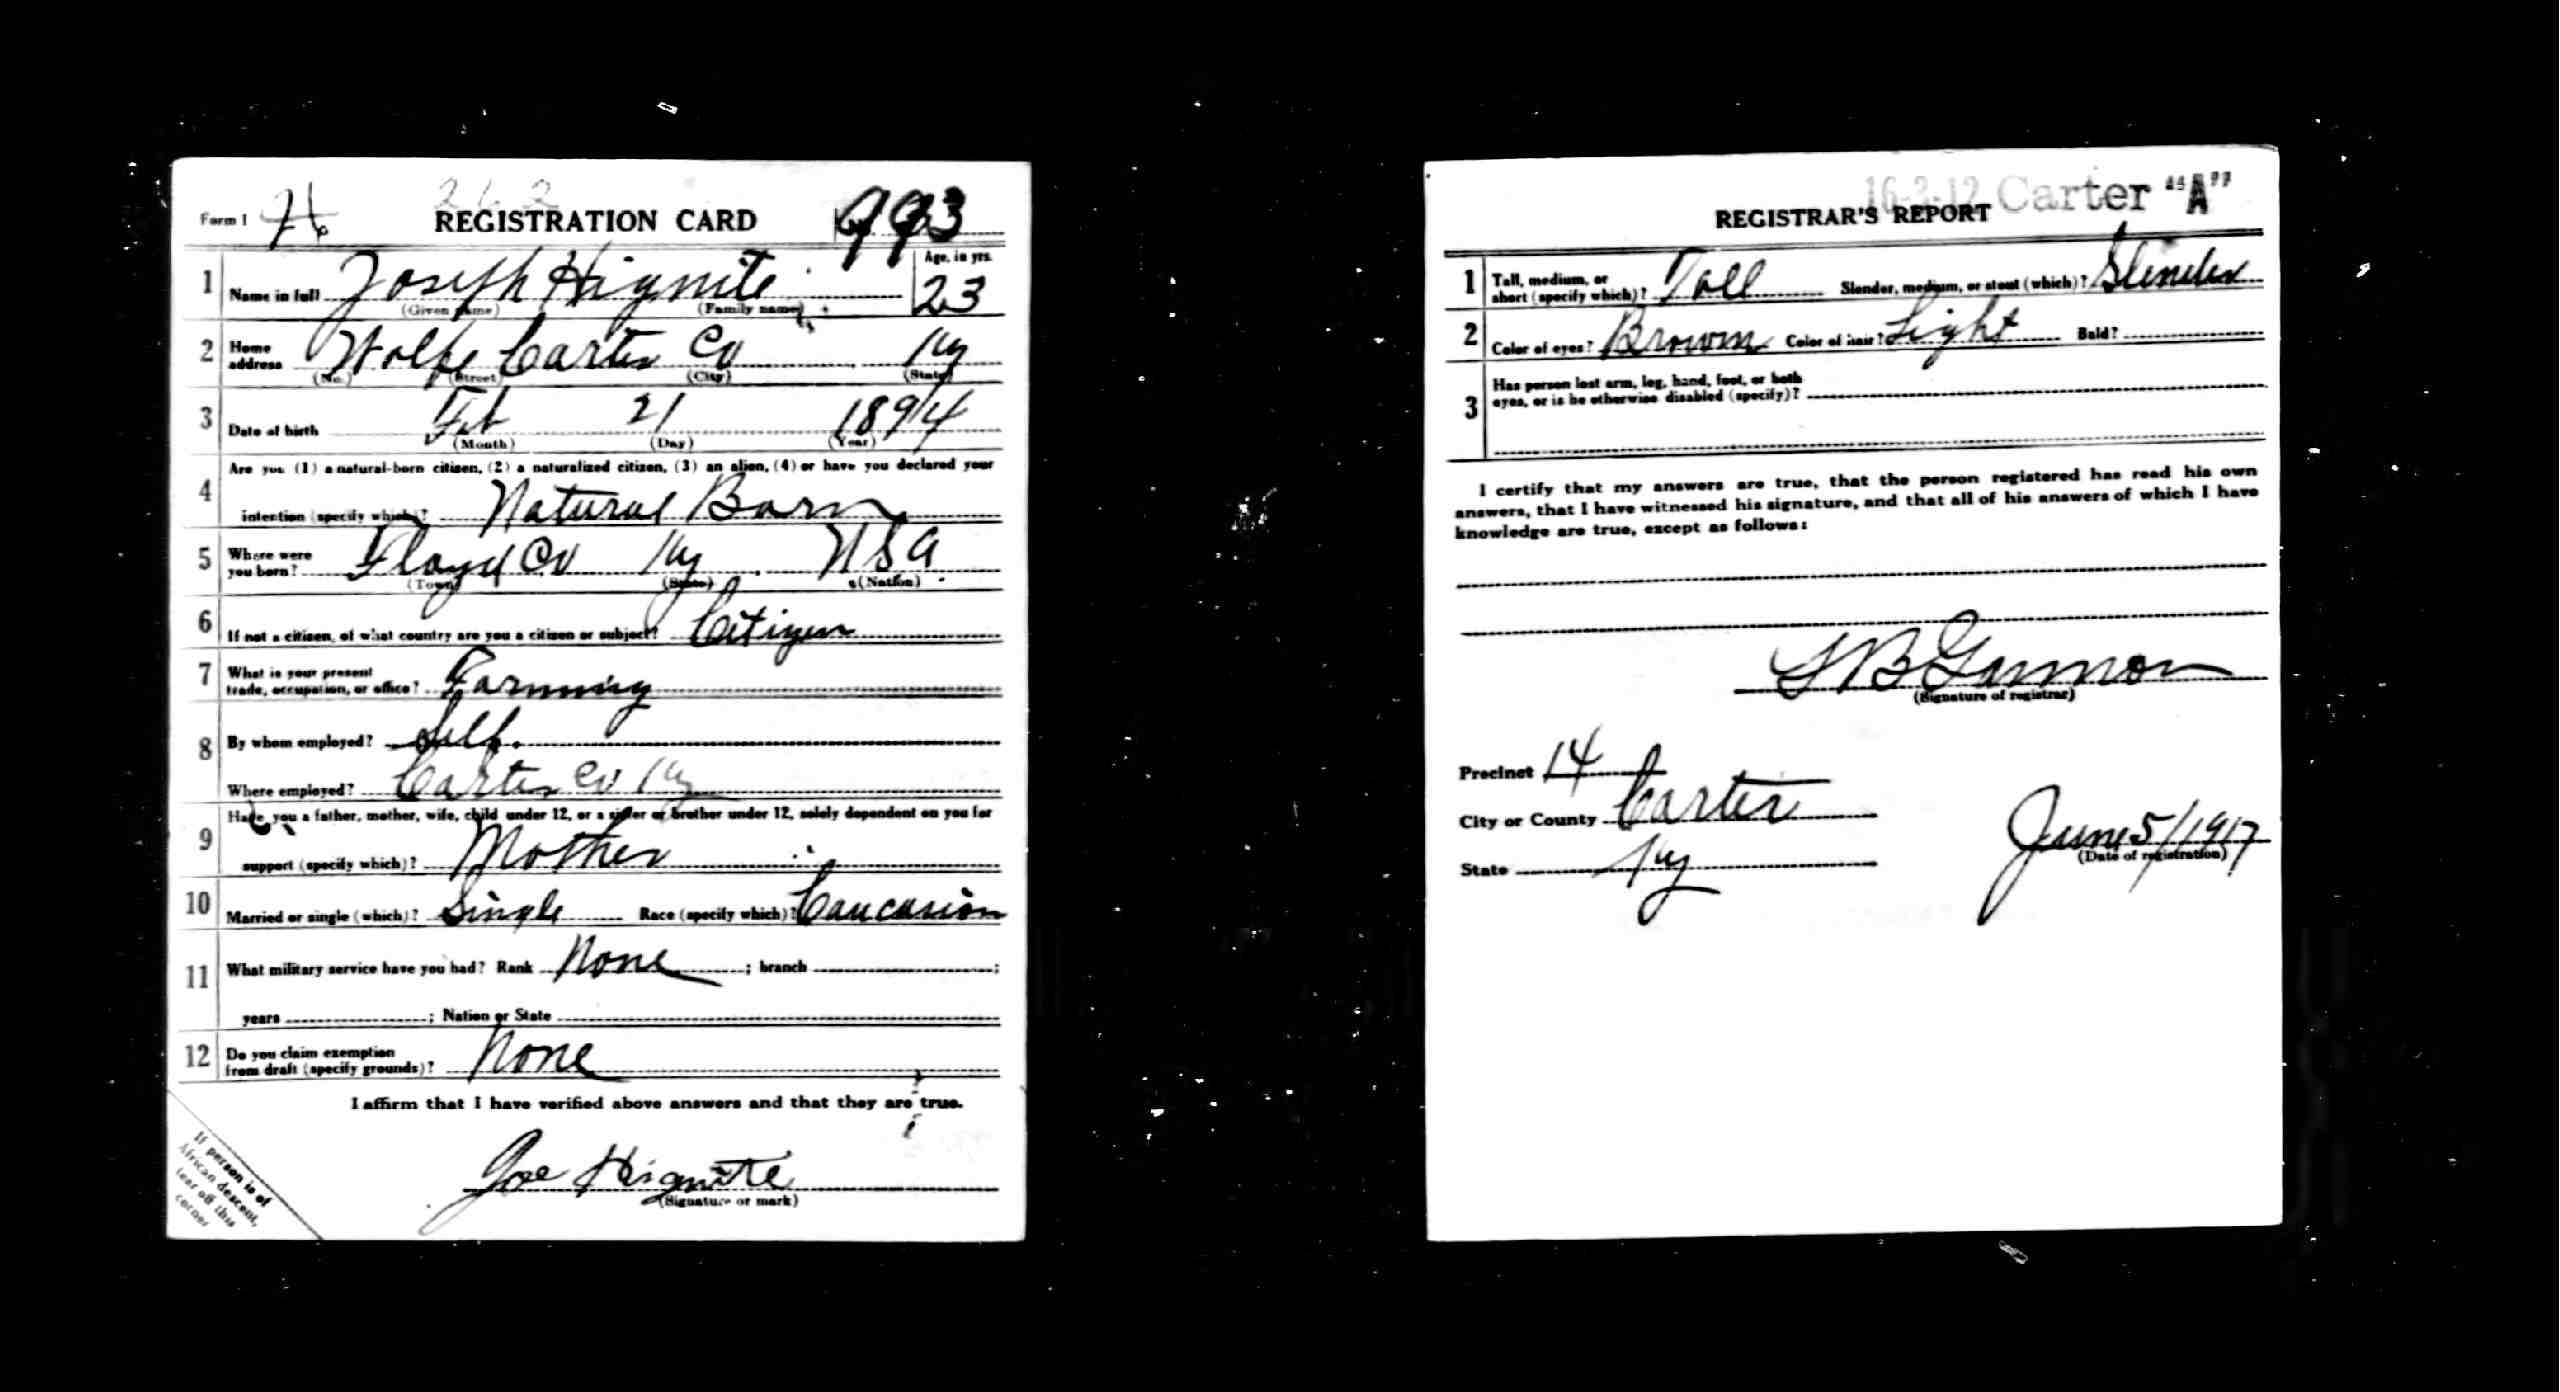 Form 1 262 993
REGISTRATION CARD
Age, in yrs.
1 Name in full Joseph Hignite 23
(Given name) (Family name)
2 Home address Wolfe Carter Co Ky
(No.) (Street) (City) (State)
3 Date of birth Feb 21 1894
(Month) (Day) (Year)
4 Are you (1) a natural-born citizen, (2) a naturalized citizen, (3) an alien, (4) or have you declared your
intention (specify which)? Natural Born
5 Where were you born? Floyd Co Ky USA
(Town) (State) (Nation)
6 If not a citizen, of what country are you a citizen or subject? Citizen
7 What is your present
trade, occupation, or office? Farming
8 By whom employed? Self.
Where employed? Carter Co Ky
9 Have you a father, mother, wife, child under 12, or a sister or brother under 12, solely dependent on you for
support (specify which)? Mother
10 Married or single (which)? Single Race (specify which)? Caucasion
11 What military service have you had? Rank None ; branch ;
years ; Nation or State
12 Do you claim exemption
from draft (specify grounds)? None
I affirm that I have verified above answers and that they are true.
Joe Hignite
(Signature or mark)
If person is of
African descent,
tear off this
corner
16-2-12 Carter "A"
REGISTRAR'S REPORT
1 Tall, medium, or
short (specify which)? Tall Slender, medium, or stout (which)? Slender
2 Color of eyes? Brown Color of hair? Light Bald?
3 Has person lost arm, leg, hand, foot, or both
eyes, or is he otherwise disabled (specify)?
I certify that my answers are true, that the person registered has read his own
answers, that I have witnessed his signature, and that all of his answers of which I have
knowledge are true, except as follows:
(Signature of registrar)
Precinct 14
City or County Carter
State Ky
June 5/1917
(Date of registration)